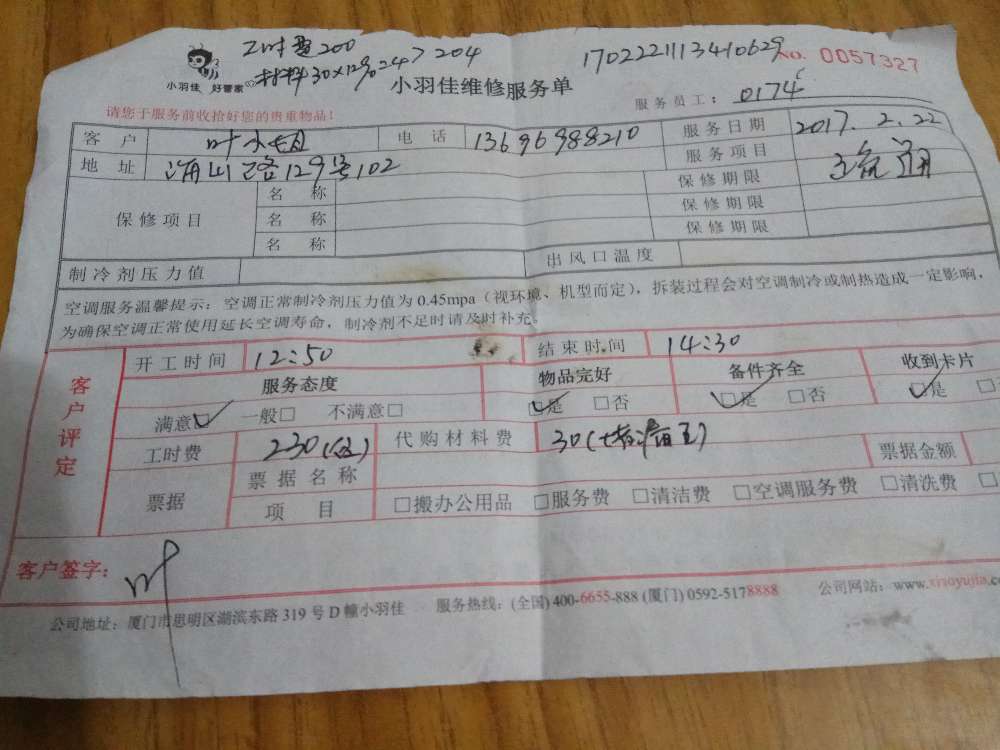 工时费200
材料30×12% 24 > 204
1702221113410629
No. 0057327
小羽佳 好管家
小羽佳维修服务单
服务员工: 0174
请您于服务前收拾好您的贵重物品!
客户 叶小姐 电话 13696988210 服务日期 2017.2.22
地址 海山路129号102 服务项目
保修项目 名称 保修期限
名称 保修期限
名称 保修期限
制冷剂压力值 出风口温度
空调服务温馨提示: 空调正常制冷剂压力值为 0.45mpa (视环境、机型而定), 拆装过程会对空调制冷或制热造成一定影响,
为确保空调正常使用延长空调寿命, 制冷剂不足时请及时补充。
客户评定
开工时间 12:50 结束时间 14:30
服务态度 物品完好 备件齐全 收到卡片
满意☑ 一般□ 不满意□ ☑是 □否 ☑是 □否 ☑是 □
工时费 230 代购材料费 30 票据金额
票据 票据名称
项目 □搬办公用品 □服务费 □清洁费 □空调服务费 □清洗费 □
客户签字: 叶
公司地址: 厦门市思明区湖滨东路 319 号 D 幢小羽佳 服务热线: (全国) 400-6655-888 (厦门) 0592-5178888 公司网站: www.xiaoyujia.c